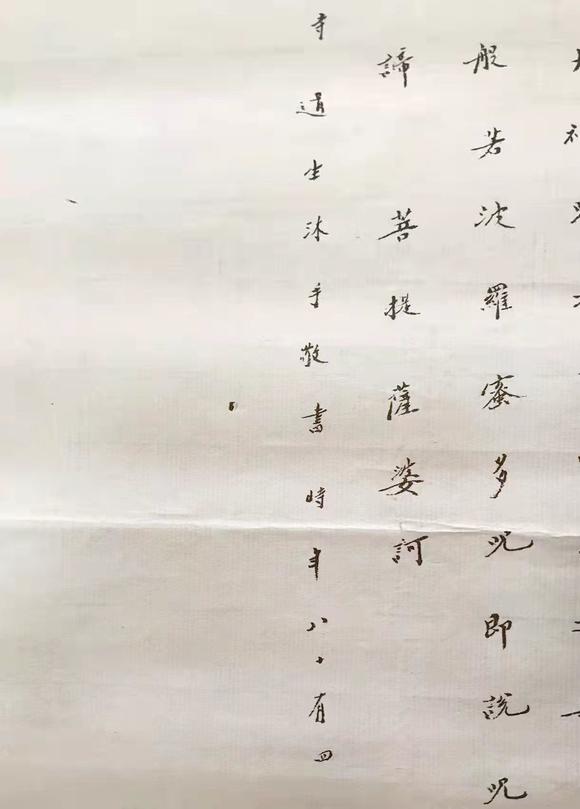 般若波羅蜜多呪即說呪
諦菩提薩婆訶
寺道坐沐手敬書時年八十有四